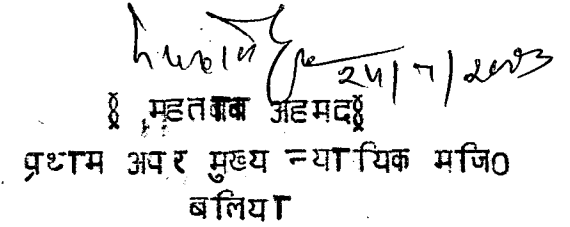 24/7/2003
§ महताब अहमद§
प्रथम अपर मुख्य न्यायिक मजि0
बलिया